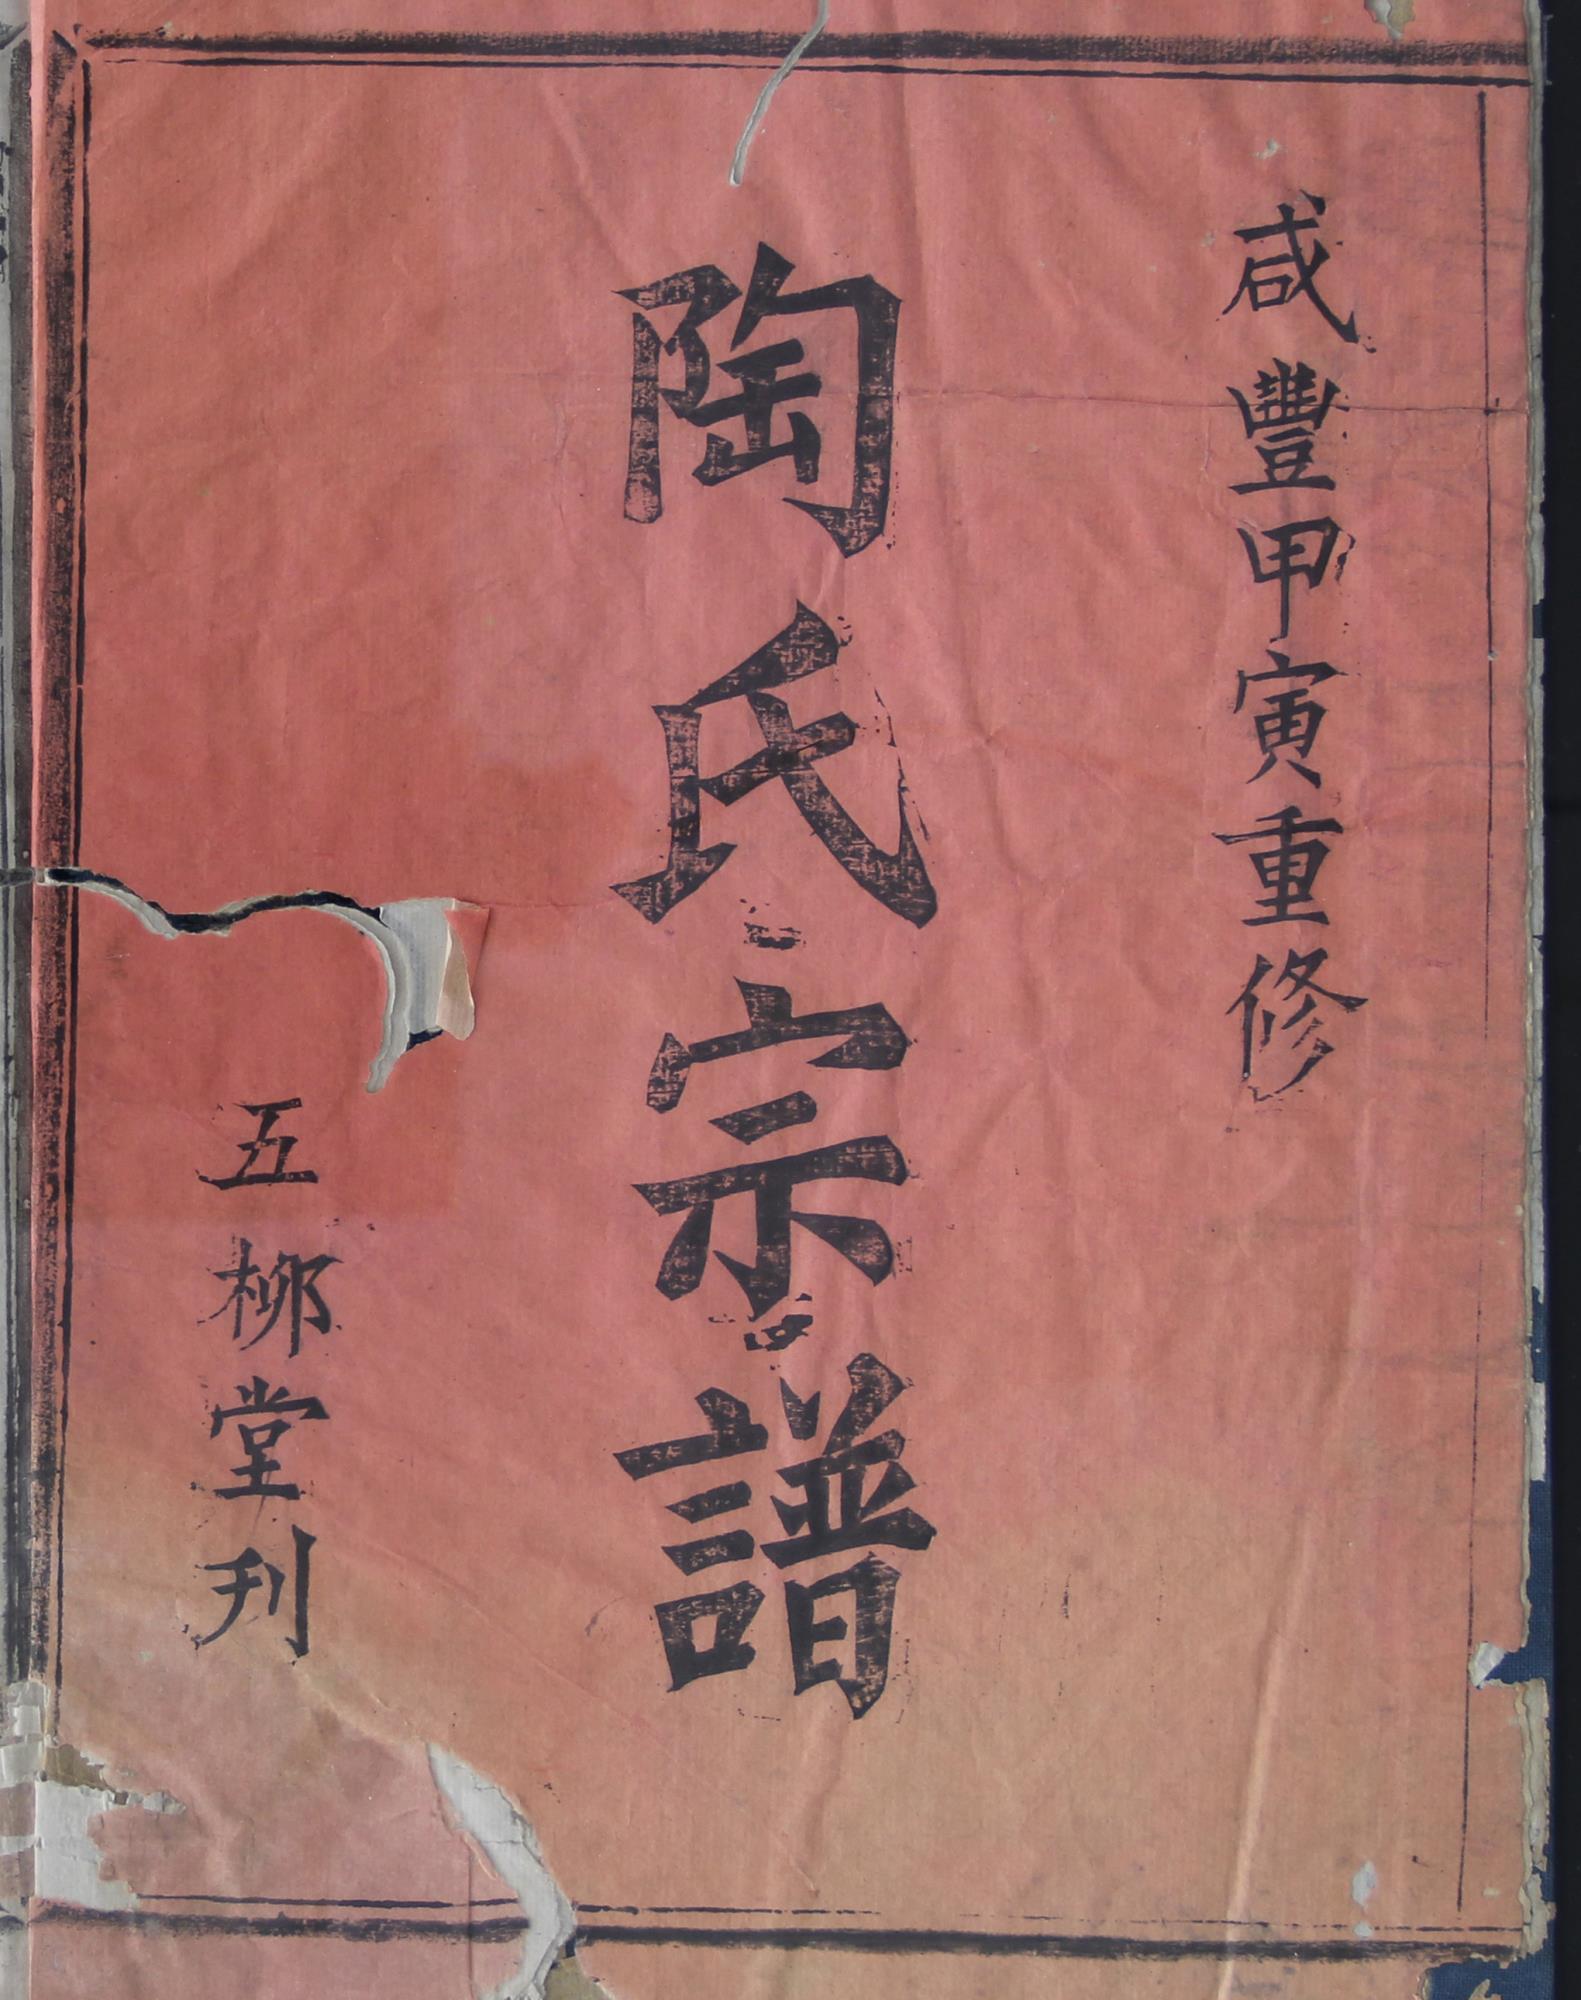 咸豐甲寅重修
陶氏宗譜
五柳堂刋